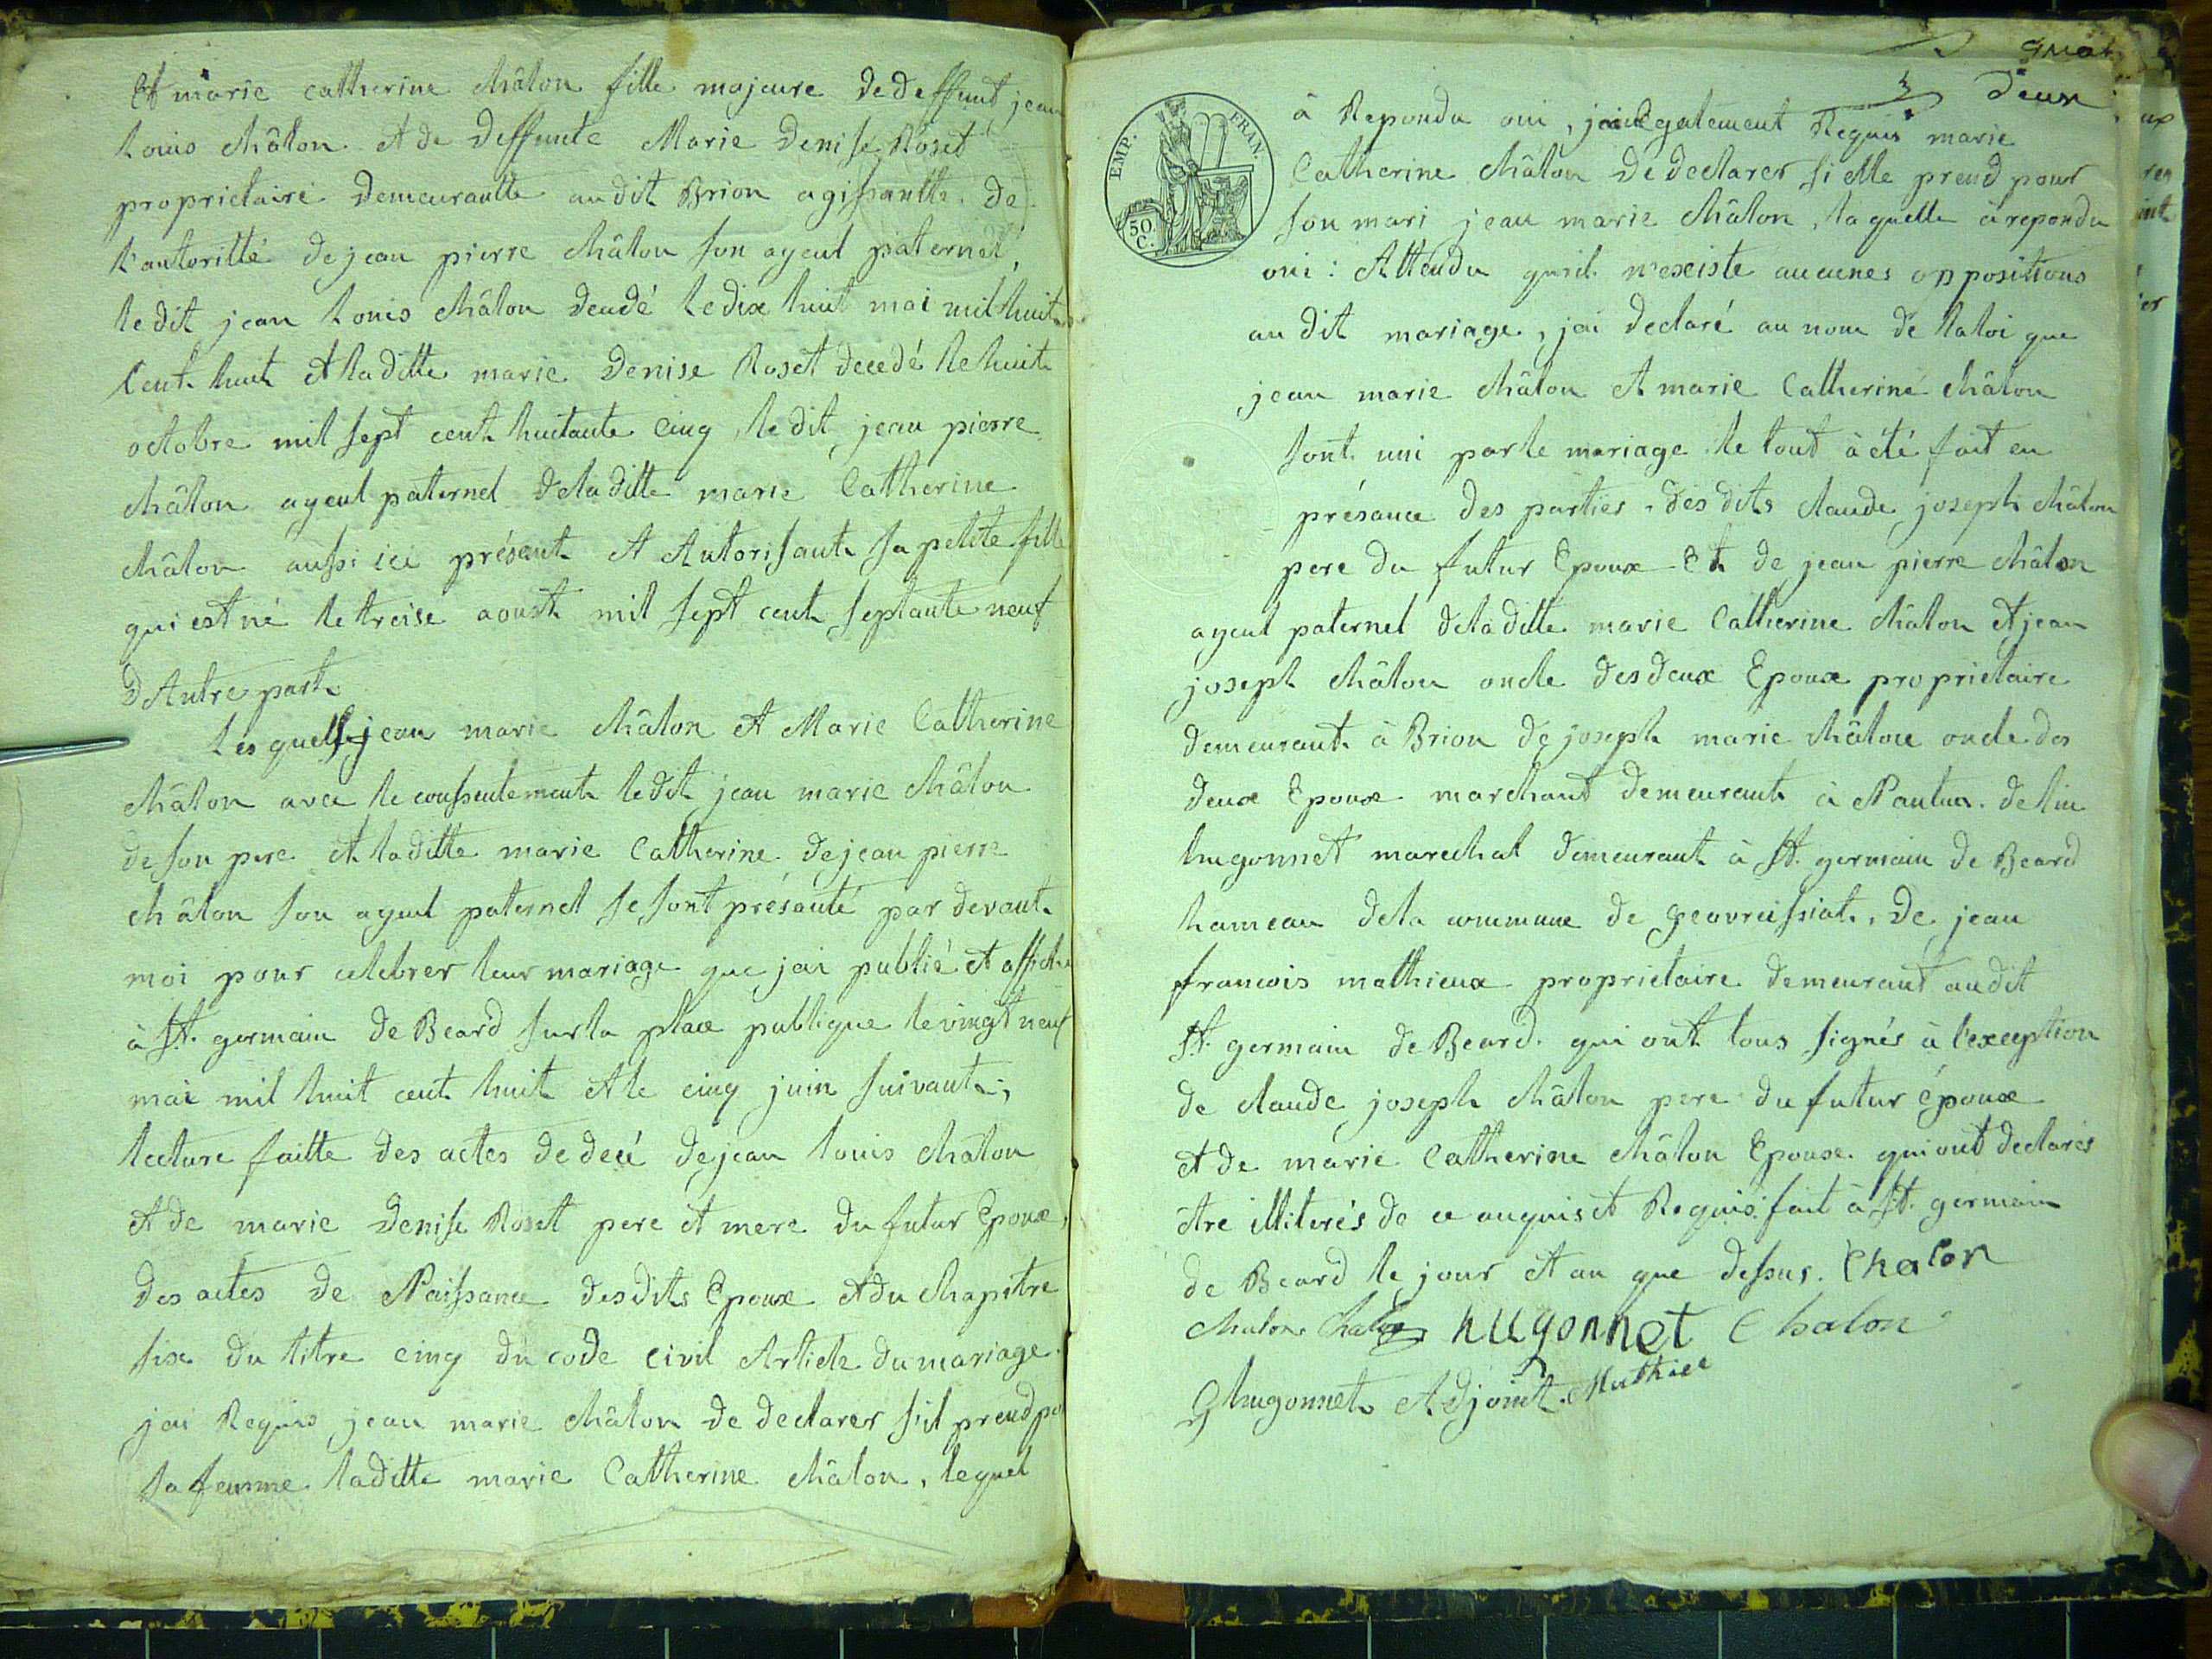 Et marie catherine châlon fille majeure de deffunt jean
louis châlon et de deffunte Marie denise Roset
proprietaire demeurantte audit Brion agissantte de
l'autoritté de jean pierre châlon son ayeul paternel,
ledit jean louis châlon decédé le dix huit mai mil huit
cent huit et laditte marie denise Roset decedé le huit
octobre mil sept cent huitante cinq, ledit jean pierre
châlon ayeul paternel de laditte marie Catherine
châlon aussi ici présent et autorisant sa petite fille
qui est né le treise aoust mil sept cent septante neuf
d'Autre part.
Les quels jean marie châlon et Marie Catherine
châlon avec le consentement ledit jean marie châlon
de son pere et laditte marie Catherine de jean pierre
châlon son ayeul paternel se sont présenté par devant
moi pour celebrer leur mariage que jai publié et affiché
à St. germain de Beard sur la place publique le vingt neuf
mai mil huit cent huit et le cinq juin suivant,
lecture faitte des actes de decé de jean louis châlon
et de marie denise Roset pere et mere du futur Epoux,
des actes de Naissance desdits Epoux et du chapitre
six du titre cinq du code civil Article du mariage.
jai Requis jean marie châlon de declarer s'il prend po
sa femme laditte marie Catherine châlon, lequel
quat
deux
EMP. FRAN.
50 C.
à Repondu oui, jai Egalement Requis marie
Catherine châlon de declarer si elle prend pour
son mari jean marie châlon, la quelle à repondu
oui : Attendu quil n'exciste aucunes oppositions
au dit mariage, jai declaré au nom de la loi que
jean marie châlon et marie Catherine châlon
sont uni par le mariage le tout à été fait en
présance des parties, des dits claude joseph châlon
pere du futur Epoux Et de jean pierre châlon
ayeul paternel de laditte marie Catherine châlon et jean
joseph châlon oncle des deux Epoux proprietaire
demeurant à Brion de joseph marie châlon oncle des
deux Epoux marchant demeurant à Nantua. de
hugonnet marechal demeurant à St. germain de Beard
hameau de la commune de geovreissiat, de jean
francois mathieux proprietaire demeurant audit
St. germain de Beard. qui ont tous signés à l'exception
de claude joseph châlon pere du futur époux
et de marie Catherine châlon Epouse qui ont declarés
être illiterés de ce enquis et Requis. fait à St. germain
de Beard le jour et an que dessus. Chalon
chalon Chalon hugonnet Chalon
hugonnet Adjoint. Mathieu